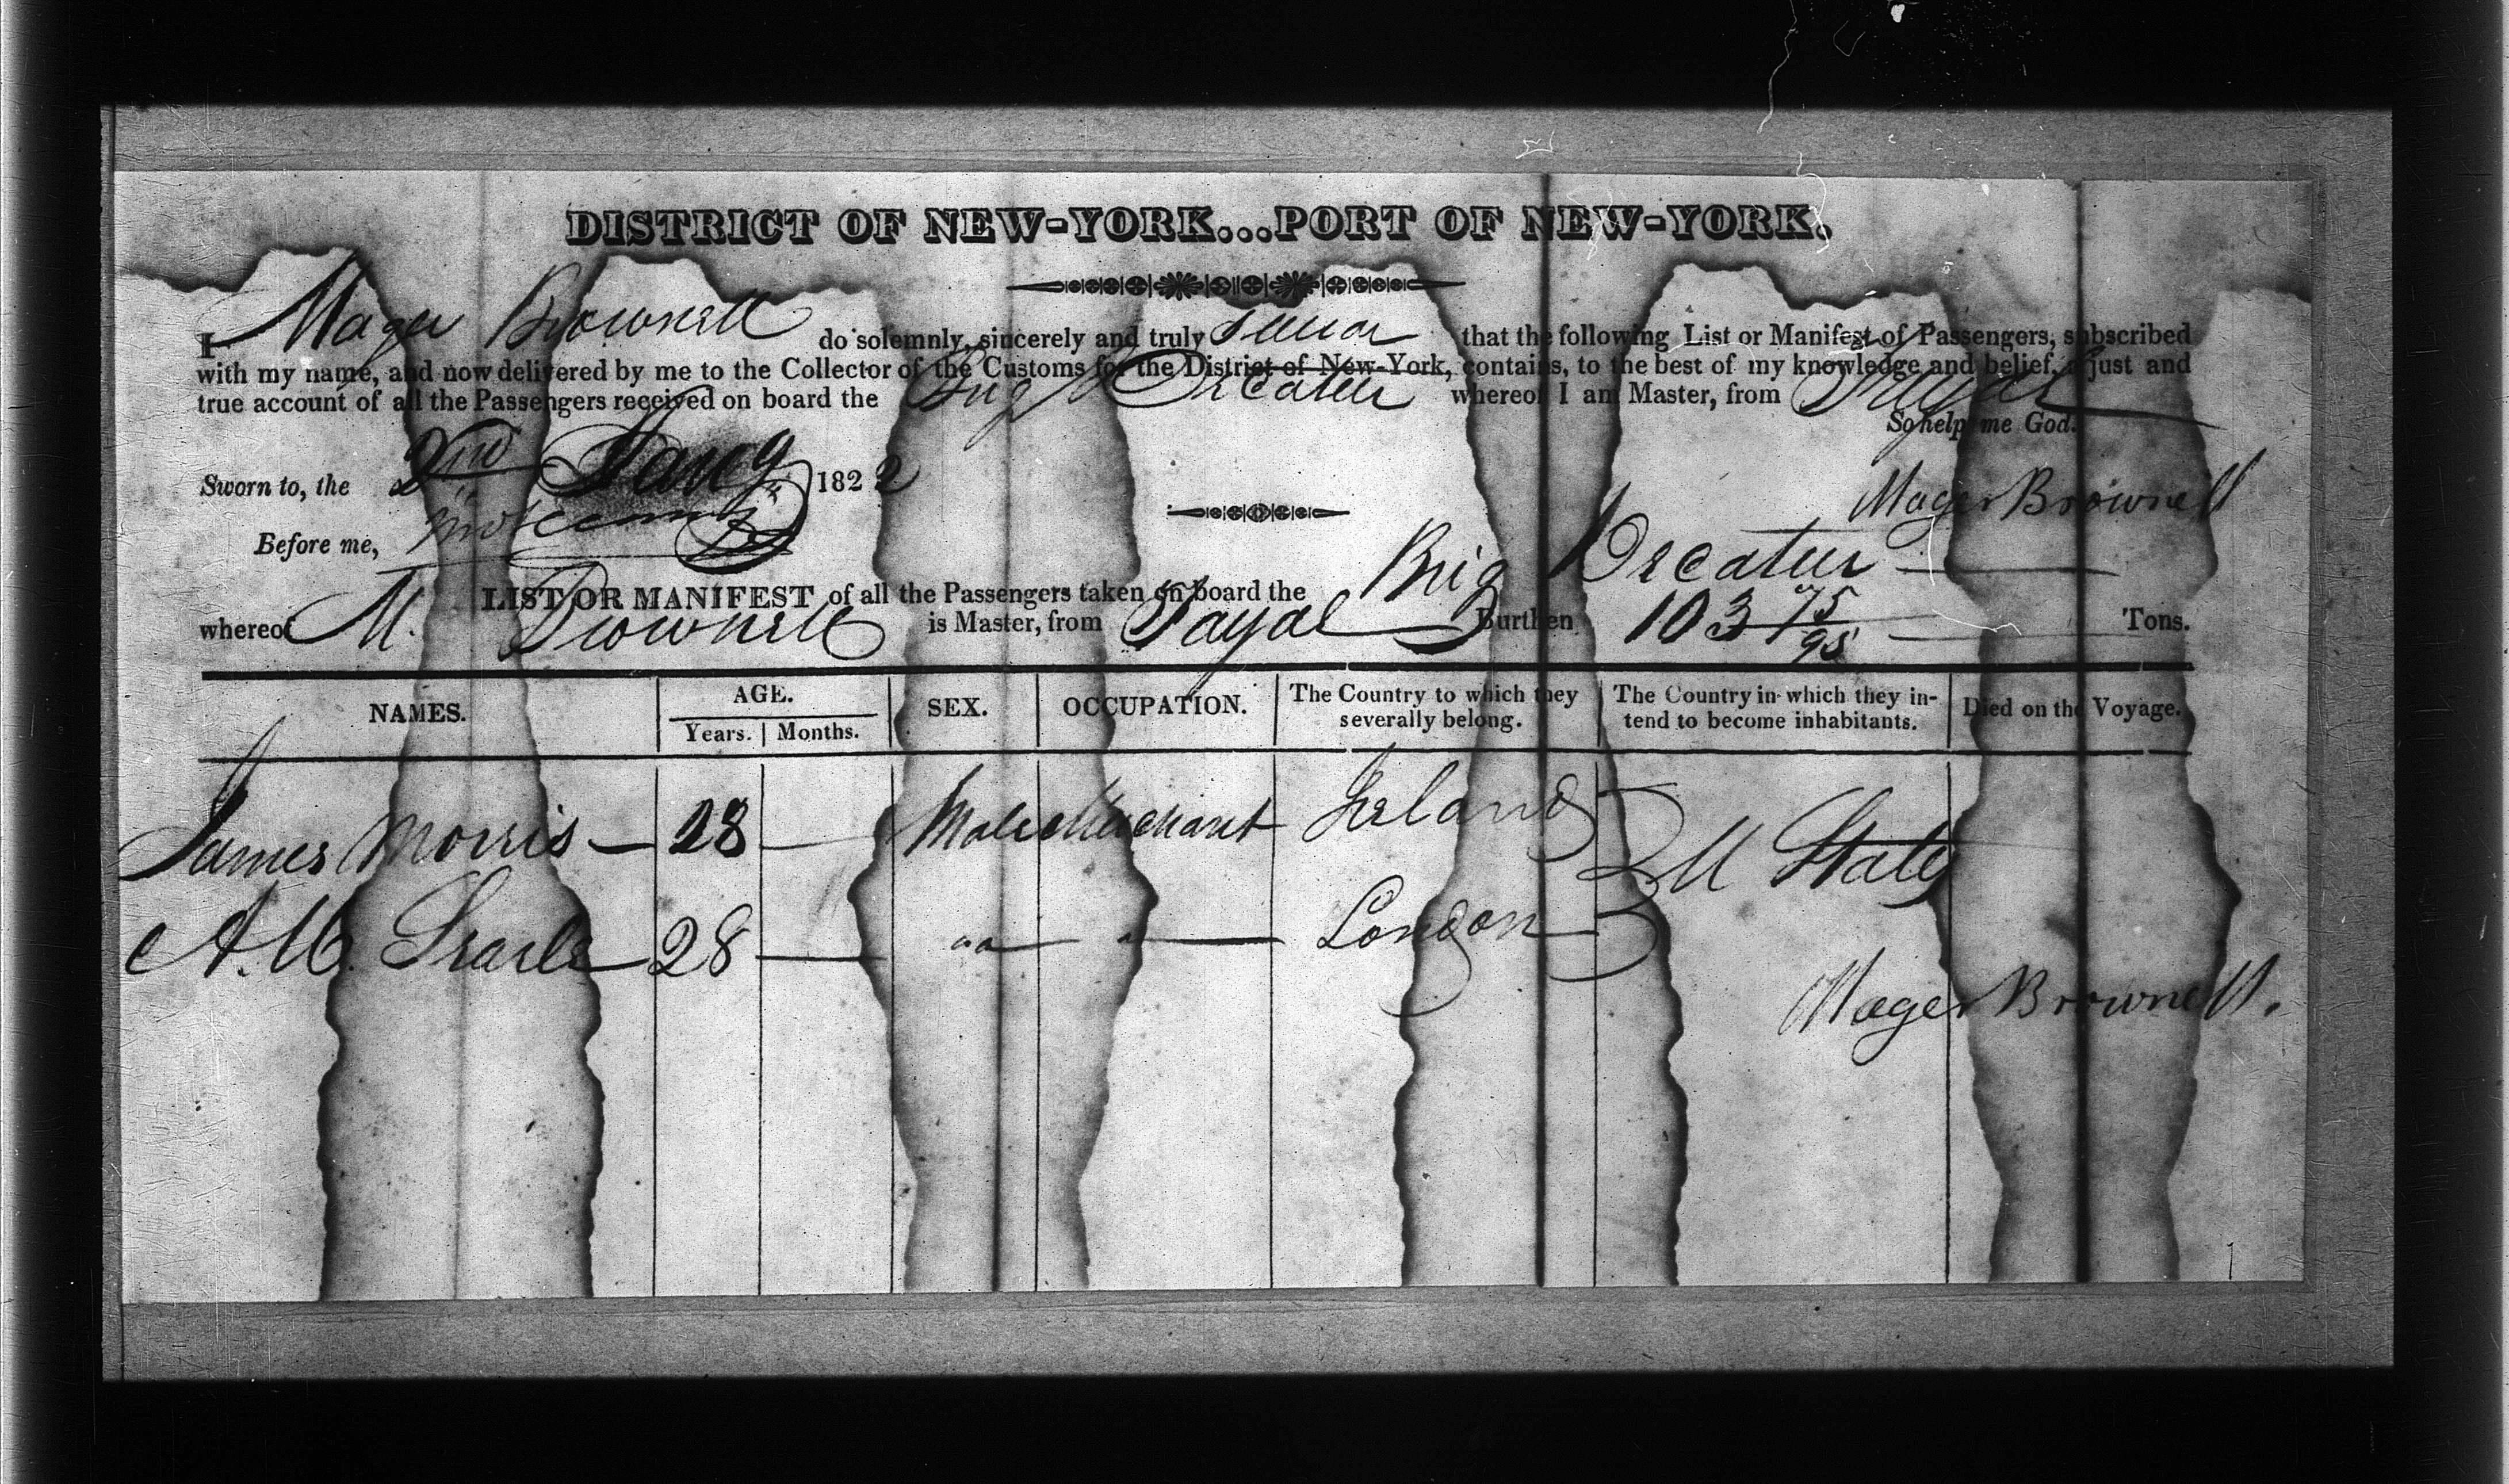 DISTRICT OF NEW-YORK...PORT OF NEW-YORK.
I Mager Brownell do solemnly, sincerely and truly swear that the following List or Manifest of Passengers, subscribed
with my name, and now delivered by me to the Collector of the Customs for the District of New-York, contains, to the best of my knowledge and belief, a just and
true account of all the Passengers received on board the Brig Decatur whereof I am Master, from Fayal
So help me God.
Sworn to, the 2nd Jany 1822
Mager Brownell
Before me,
LIST OR MANIFEST of all the Passengers taken on board the Brig Decatur
whereof M. Brownell is Master, from Fayal Burthen 103 75/95 Tons.
NAMES. AGE. SEX. OCCUPATION. The Country to which they severally belong. The Country in which they in-tend to become inhabitants. Died on the Voyage.
Years. Months.
James Morris — 28 — Male Merchant Ireland
U States
A. M. Searle — 28 — " " — London
Mager Brownell.